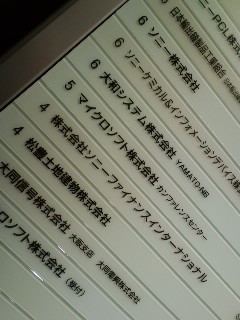 ニーPCL株式会
日本輸出縫製品工業組合
6 ソニー株式会社
6 ソニーケミカル&インフォメーションデバイス株
6 大和システム株式会社 YAMATO-NE
5 マイクロソフト株式会社 カンファレンスセンター
4 株式会社ソニーファイナンスインターナショナル
4 松慶土地建物株式会社
大同信号株式会社 大阪支店 大同電興株式会社
ロソフト株式会社 (受付)